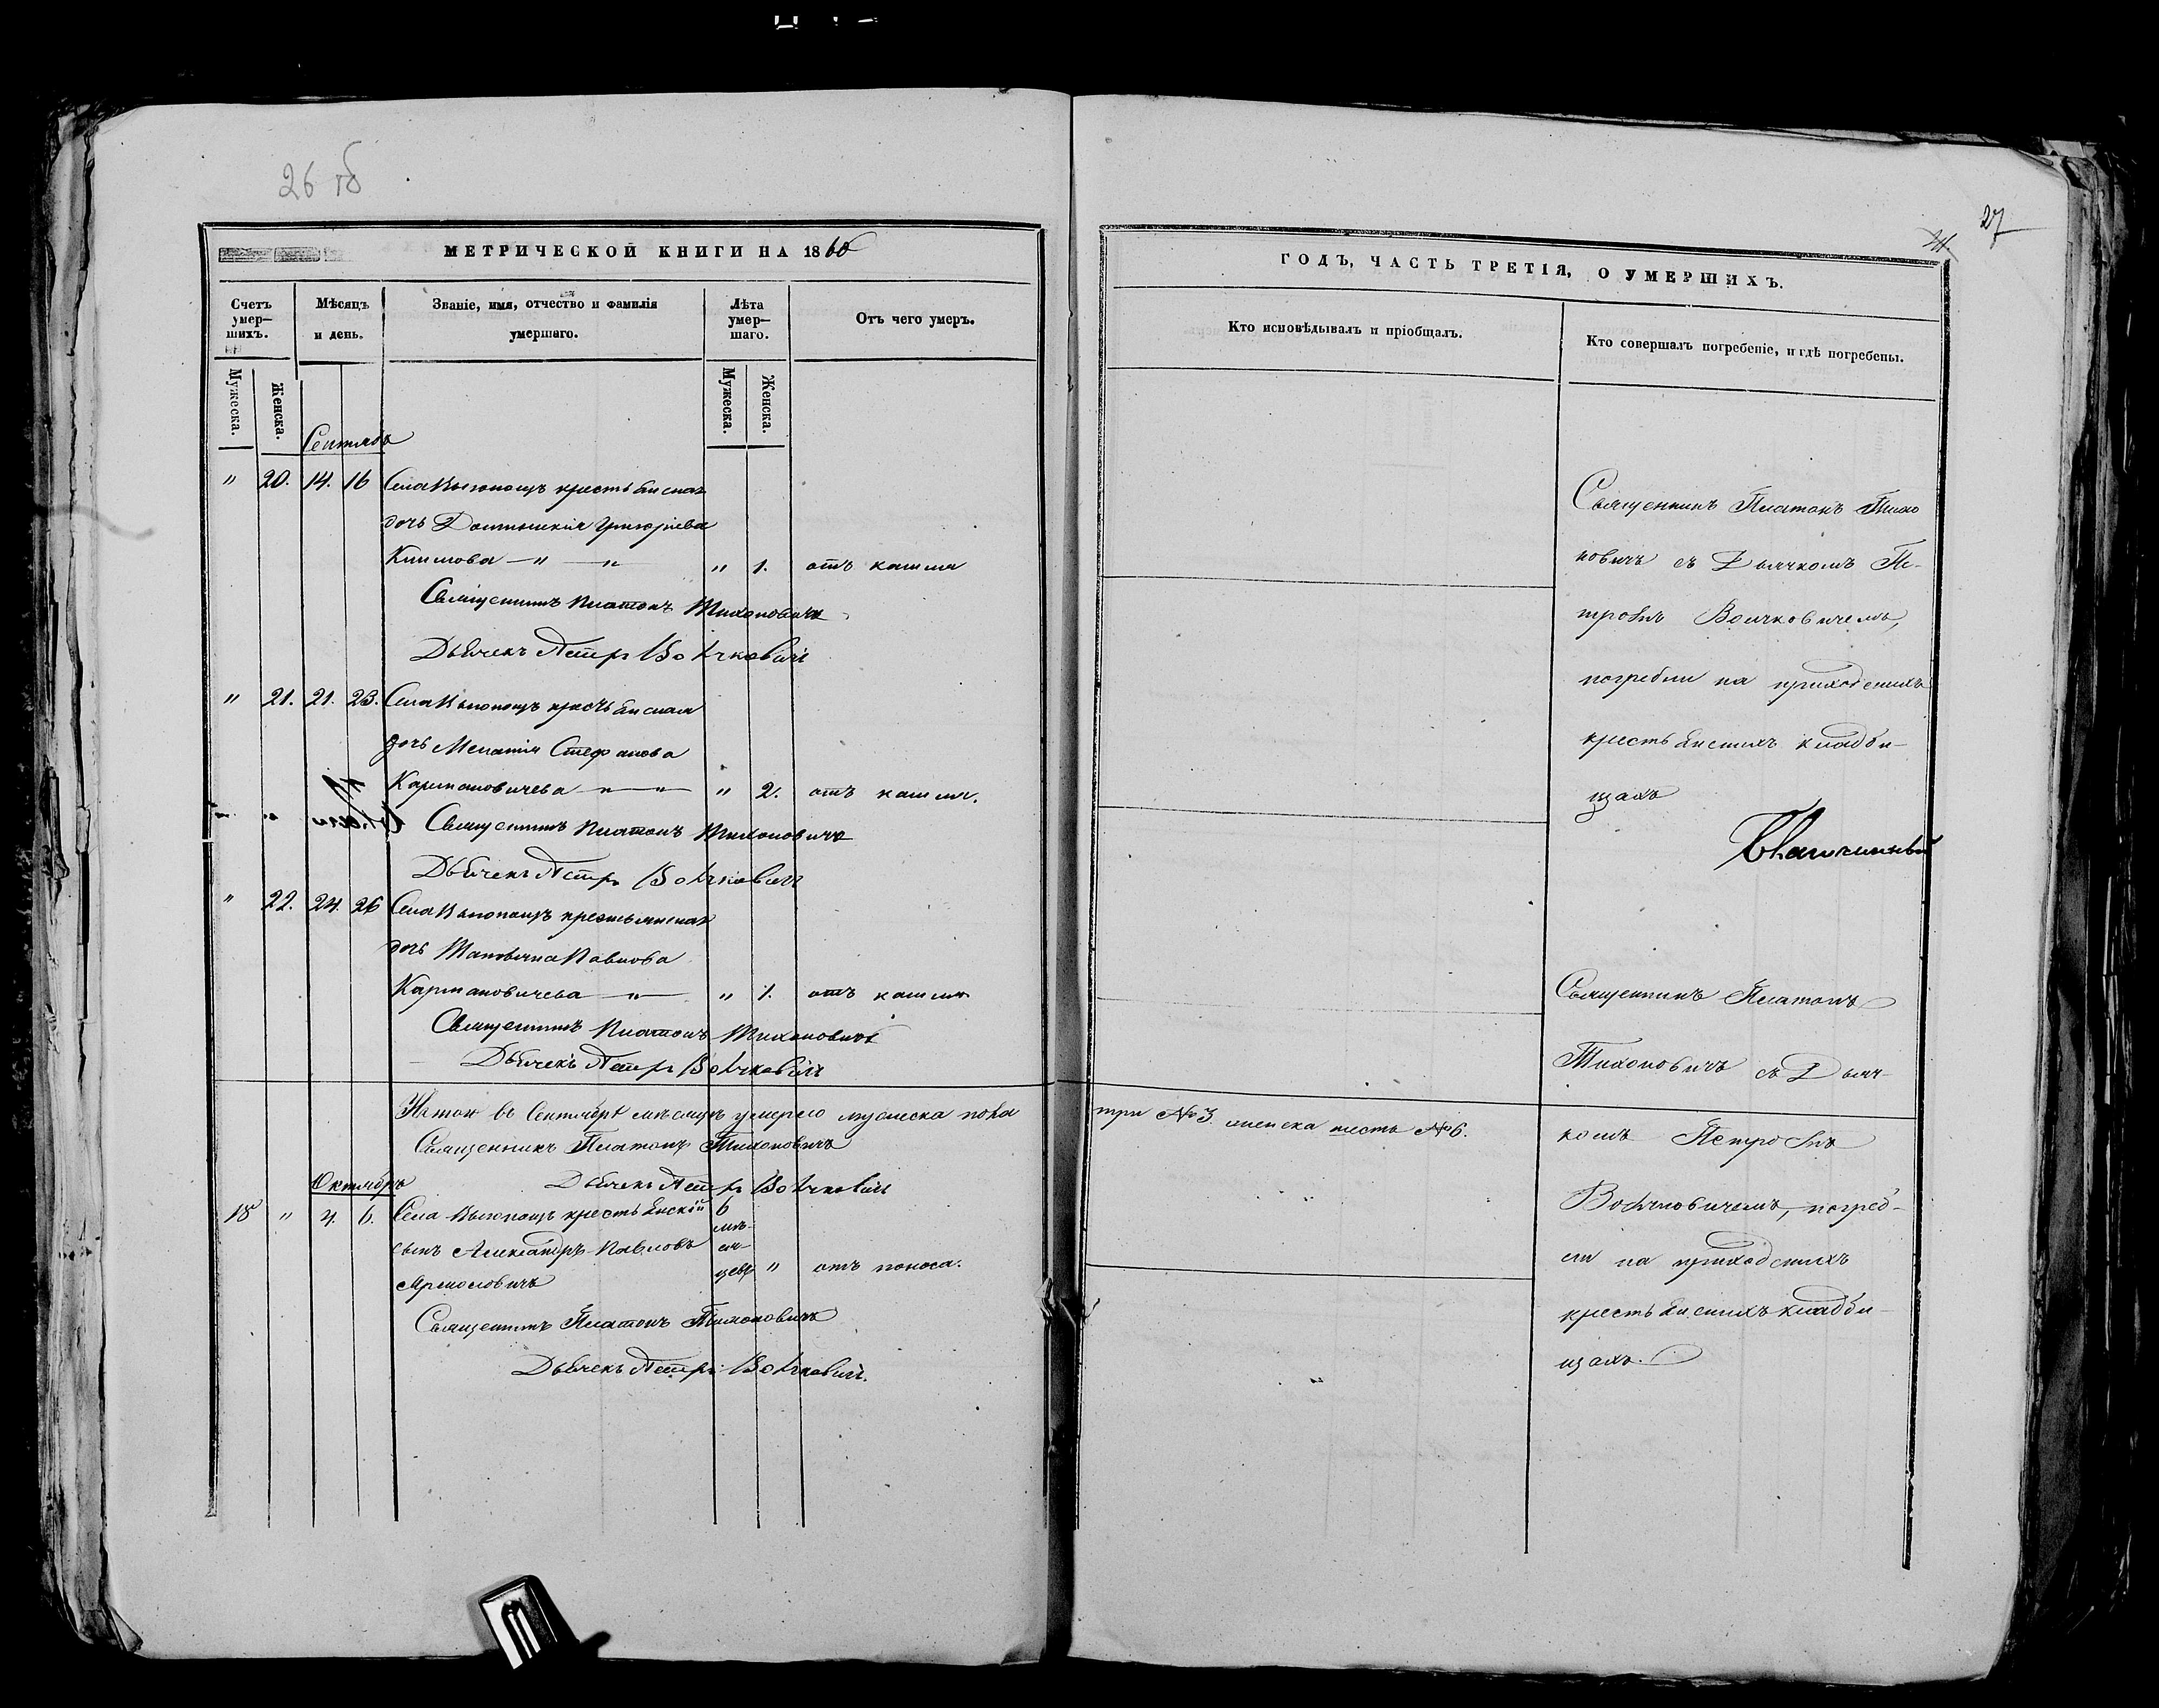 26 об
МЕТРИЧЕСКОЙ КНИГИ НА 1860
Счетъ умер—шихъ.
Мѣсяцъ и день.
Званіе, имя, отчество и фамилія умершаго.
Лѣта умер—шаго.
Отъ чего умеръ.
Мужеска.
Женска.
Мужеска.
Женска.
Сентябрь
" 20. 14. 16 Села крестьянская
дочь Григоріева
Климова — " — " " 1. отъ кашля
Священникъ Платонъ Тихоновичъ
Дьячекъ Петръ
" 21. 21. 23. Села крестьянская
дочь Меланія Стефанова
Кармановичева — " — " " 2. отъ кашля.
Священникъ Платонъ Тихоновичъ
Дьячекъ Петръ
" 22. 24. 26 Села крестьянская
дочь Татьяна Павлова
Кармановичева — " — " 1. отъ кашля
Священникъ Платонъ Тихоновичъ
Дьячекъ Петръ
Итого въ Сентябрѣ мѣсяцѣ умерло мужеска пола
Священникъ Платонъ Тихоновичъ
Дьячекъ Петръ
Октябрь
18 " 4. 6. Села крестьянскій 6 мѣ-
сынъ Александръ Павловъ сяцевъ " отъ поноса.
Ярмоловичъ
Священникъ Платонъ Тихоновичъ
Дьячекъ Петръ
27
ГОДЪ, ЧАСТЬ ТРЕТІЯ, О УМЕРШИХЪ.
Кто исповѣдывалъ и пріобщалъ.
Кто совершалъ погребеніе, и гдѣ погребены.
Священникъ Платонъ Тихо
новичъ съ Дьячкомъ Пе-
тромъ
погребли на приходскихъ
крестьянскихъ кладби-
щахъ
Священникъ Платонъ
Тихоновичъ съ Дьяч-
три №3. женска шесть №6.
комъ Петромъ
погреб-
ли на приходскихъ
крестьянскихъ кладби-
щахъ.